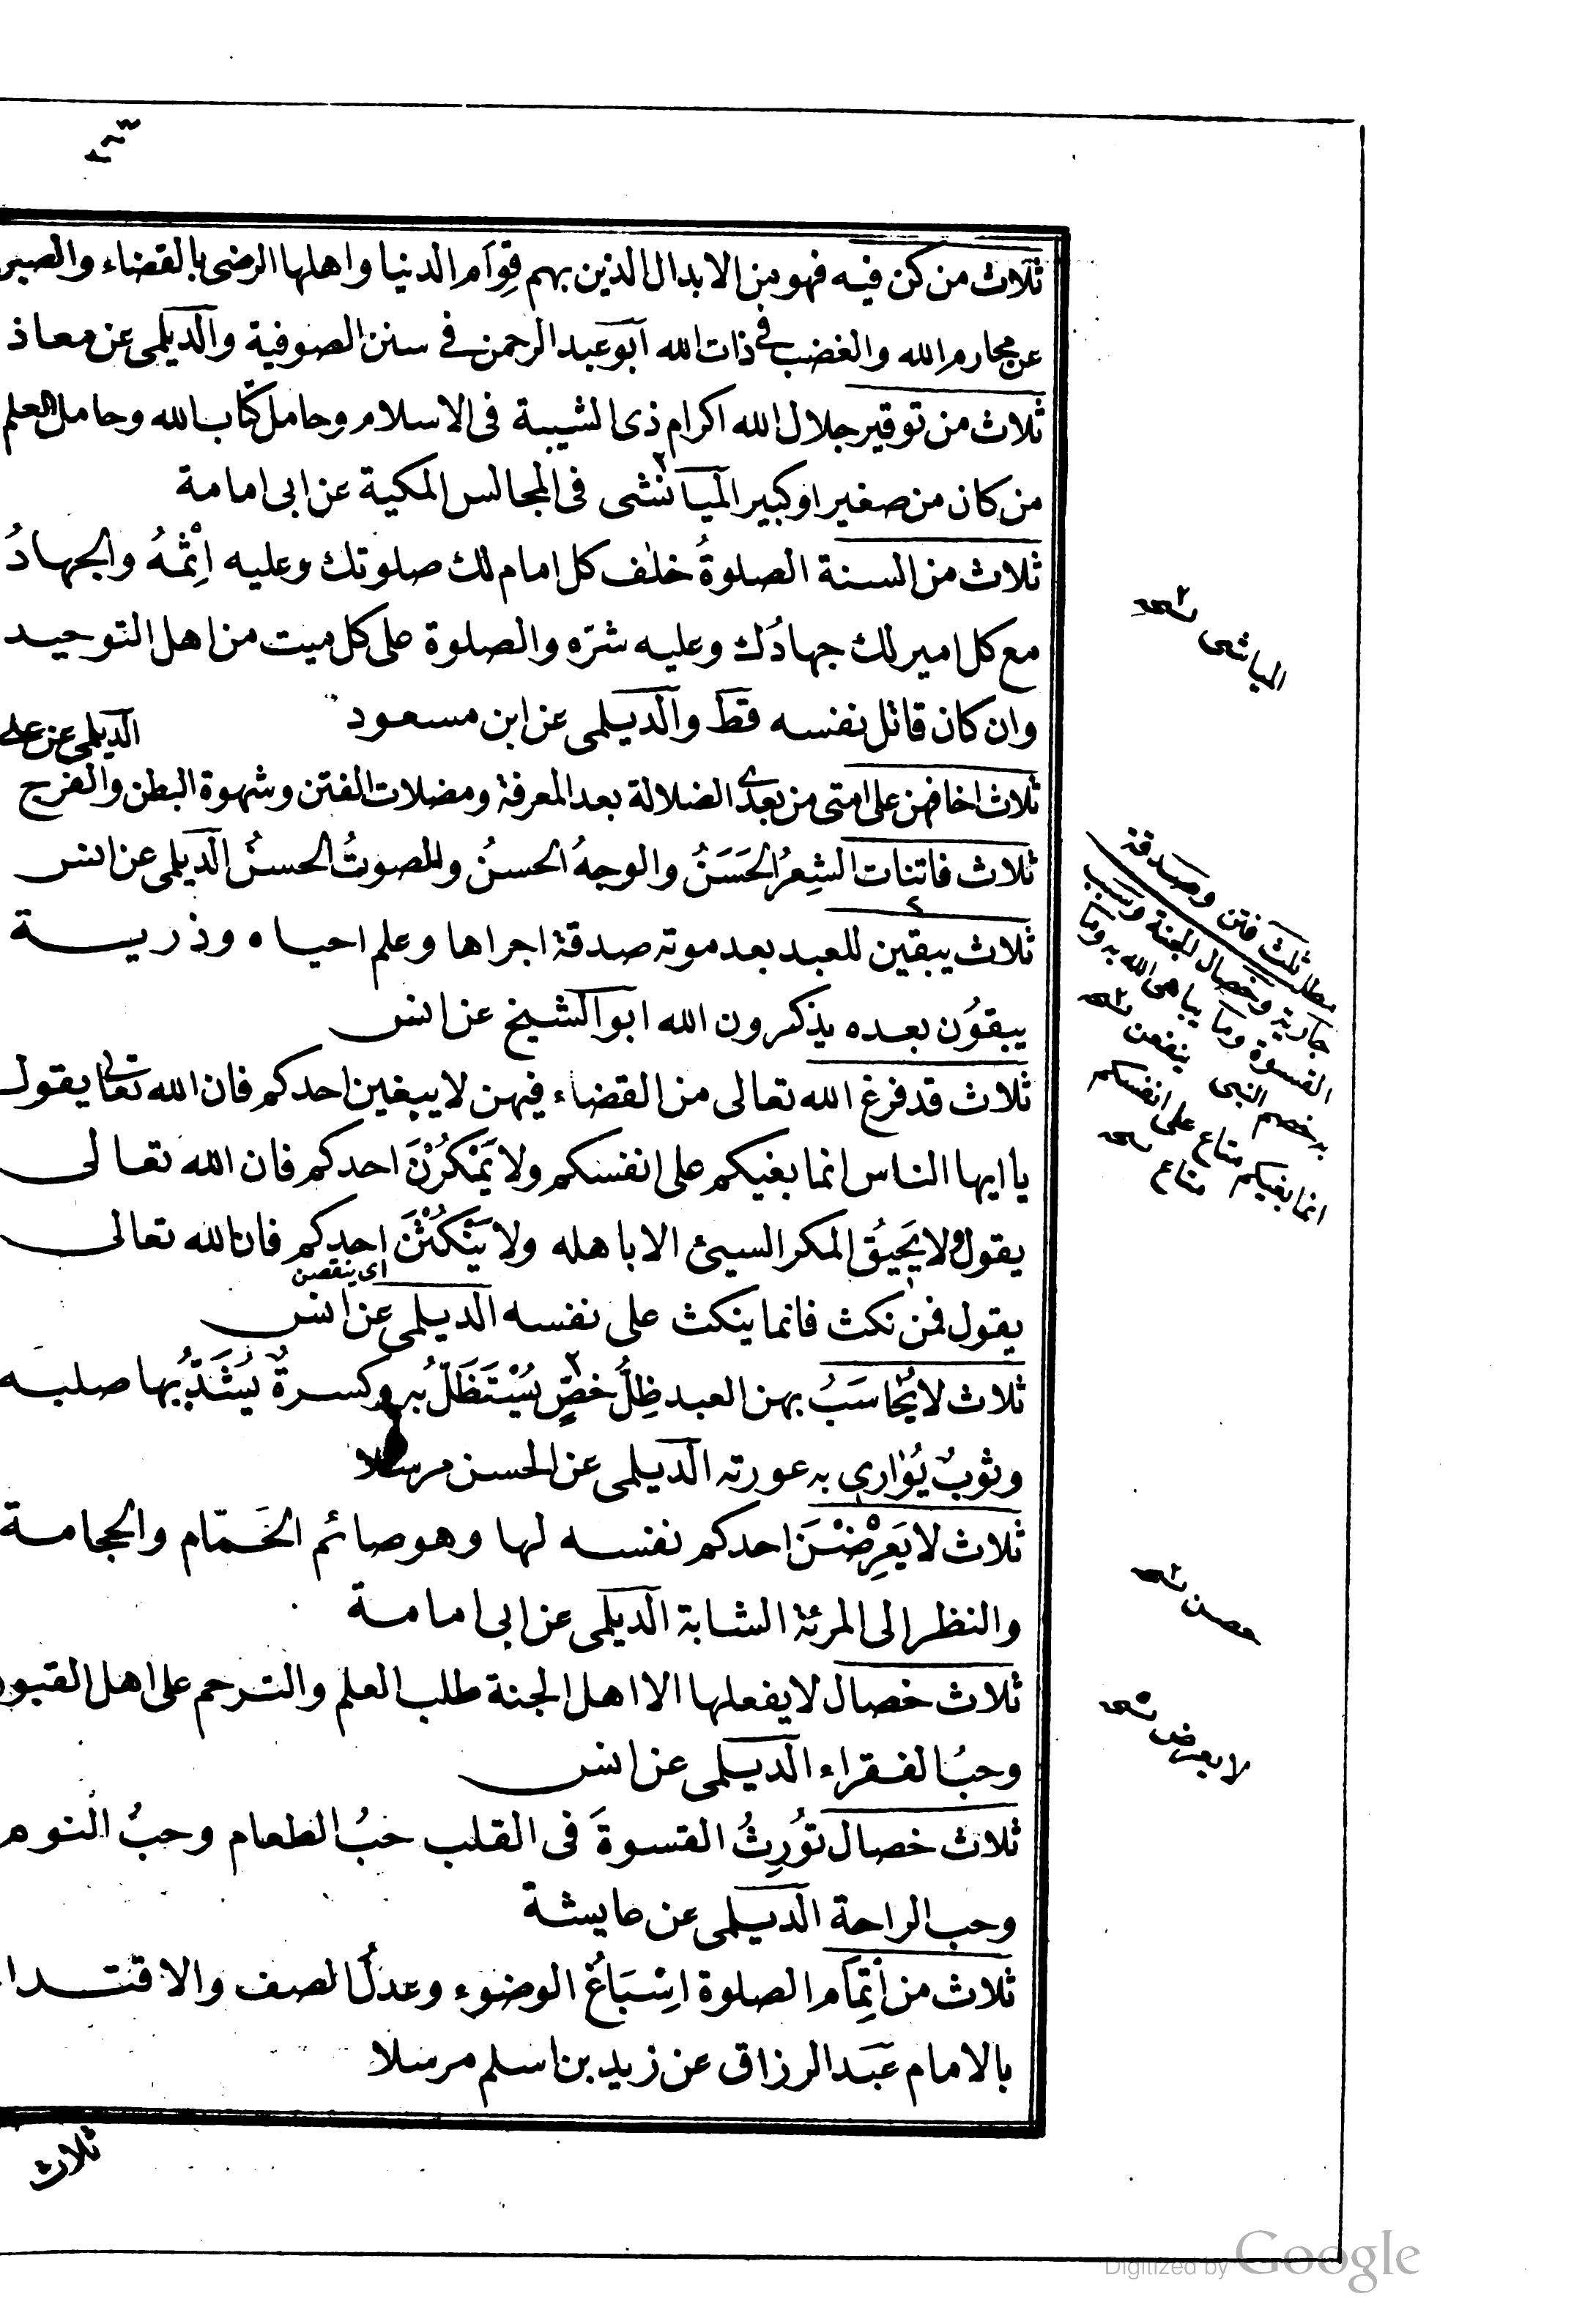 ثلاث من كن فيه فهو من الابدال الذين بهم قِوام الدنيا واهلها الرضى بالقضاء والصبر
عن محارم الله والغضب فى ذات الله ابو عبد الرحمن فى سنن الصوفية والديلمى عن معاذ
ثلاث من توقير جلال الله اكرام ذى الشيبة فى الاسلام وحامل كتاب الله وحامل العلم
من كان من صغير او كبير الميانشى فى المجالس المكية عن ابى امامة
ثلاث من السنة الصلوةُ خلف كل امام لك صلوتك وعليه اِثمُهُ والجهادُ
مع كل امير لك جهادُك وعليه شرّه والصلوة على كل ميت من اهل التوحيد
وان كان قاتل نفسه قط والديلمى عن ابن مسعود
الديلمى عن على
ثلاث اخافهن على امتى من بعدى الضلالة بعد المعرفة ومضلات الفتن وشهوة البطن والفرج
ثلاث فاتنات الشِعرُ الحَسَنُ والوجهُ الحسنُ والصوتُ الحسنُ الديلمى عن انس
ثلاث يبقين للعبد بعد موته صدقة اجراها وعلم احياه وذرية
يبقوُن بعده يذكرون الله ابو الشيخ عن انس
ثلاث قد فرغ الله تعالى من القضاء فيهن لا يبغين احدكم فان الله تعالى يقول
يا ايها الناس انما بغيكم على انفسكم ولا يَمْكُرَنَّ احدكم فان الله تعالى
يقول ولا يَحِيقُ المكر السيئ الا باهله ولا يَنْكُثَنَّ احدكم فان الله تعالى
اى ينقصن
يقول فمن نكث فانما ينكث على نفسه الديلمى عن انس
ثلاث لا يُحَاسَبُ بهن العبد ظِلُّ خصٍّ يُسْتَظَلُّ به وكسرةٌ يَشُدُّ بها صلبه
وثوبٌ يُوارى به عورته الديلمى عن الحسن مرسلا
ثلاث لا يَعرِضْنَ احدكم نفسه لها وهو صائم الحَمّام والحجامة
والنظر الى المرئة الشابة الديلمى عن ابى امامة
ثلاث خصال لا يفعلها الا اهل الجنة طلب العلم والترحم على اهل القبور
وحبُ الفقراء الديلمى عن انس
ثلاث خصال تُورِثُ القسوةَ فى القلب حبُ الطعام وحبُ النوم
وحب الراحة الديلمى عن عايشة
ثلاث من اتمام الصلوة اسْبَاغُ الوضوء وعدلُ الصف والاقتداء
بالامام عبد الرزاق عن زيد بن اسلم مرسلا
ثلاث
المياشى
مطلب ثلث فتن وصدقة
جارية وخصال الجنة وسبب
القسوة وما يباهى الله به وما
به خصم النبى
ينقصن
انما بغيكم متاع على انفسكم
متاع
لا يعرض
Digitized by Google